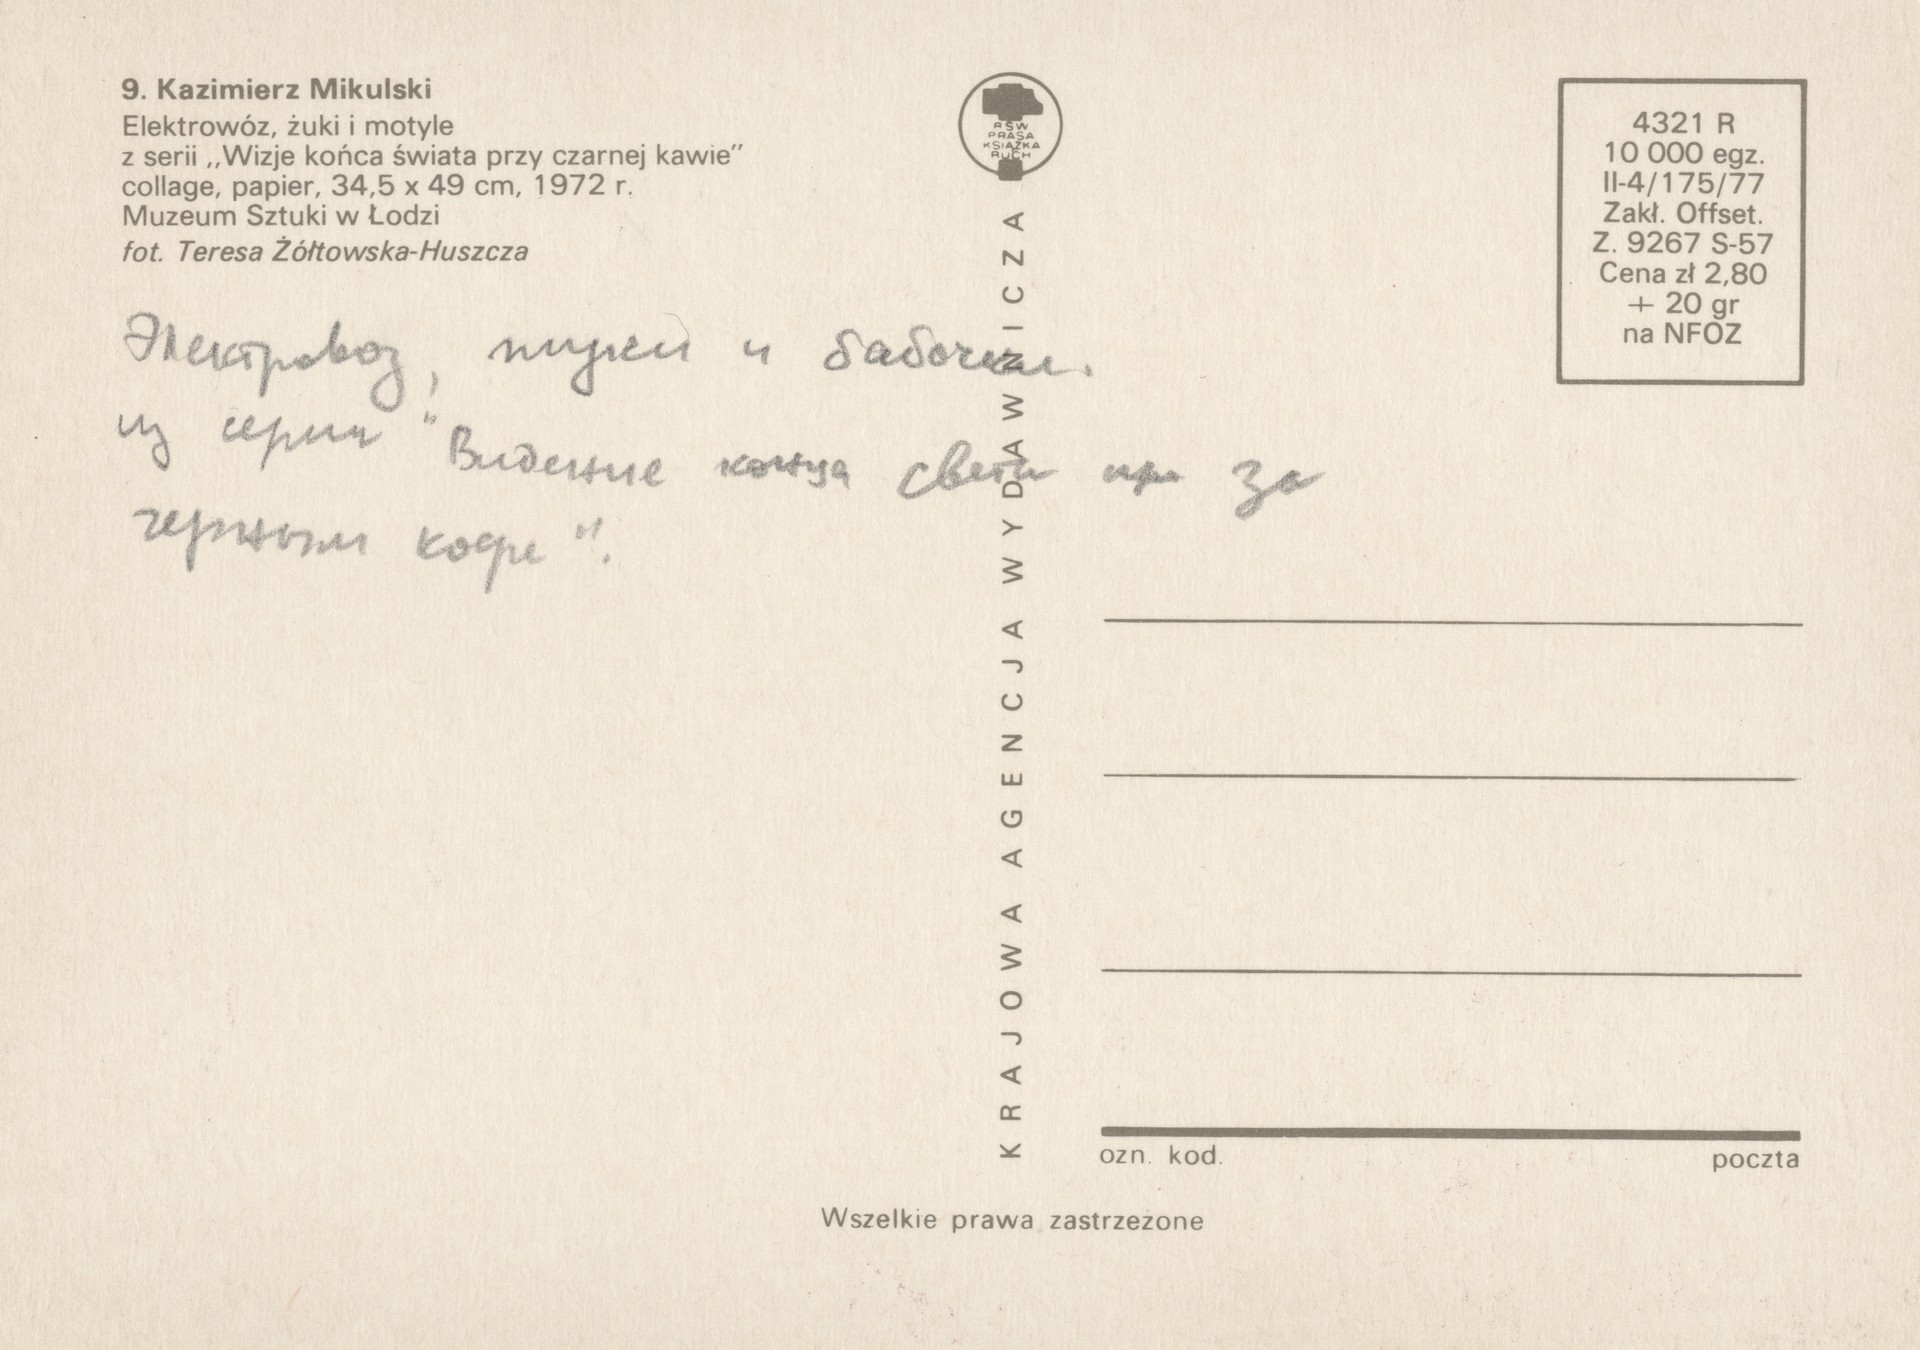 9. Kazimierz Mikulski
Elektrowóz, żuki i motyle
z serii ,,Wizje końca świata przy czarnej kawie"
collage, papier, 34,5 x 49 cm, 1972 r.
Muzeum Sztuki w Łodzi
fot. Teresa Żółtowska-Huszcza
Электровоз, жуки и бабочки.
из серии "Видение конца света за
черным кофе".
RSW
PRASA
KSIĄŻKA
RUCH
KRAJOWA AGENCJA WYDAWNICZA
4321 R
10 000 egz.
II-4/175/77
Zakł. Offset.
Z. 9267 S-57
Cena zł 2,80
+ 20 gr
na NFOZ
ozn. kod.
poczta
Wszelkie prawa zastrzeżone